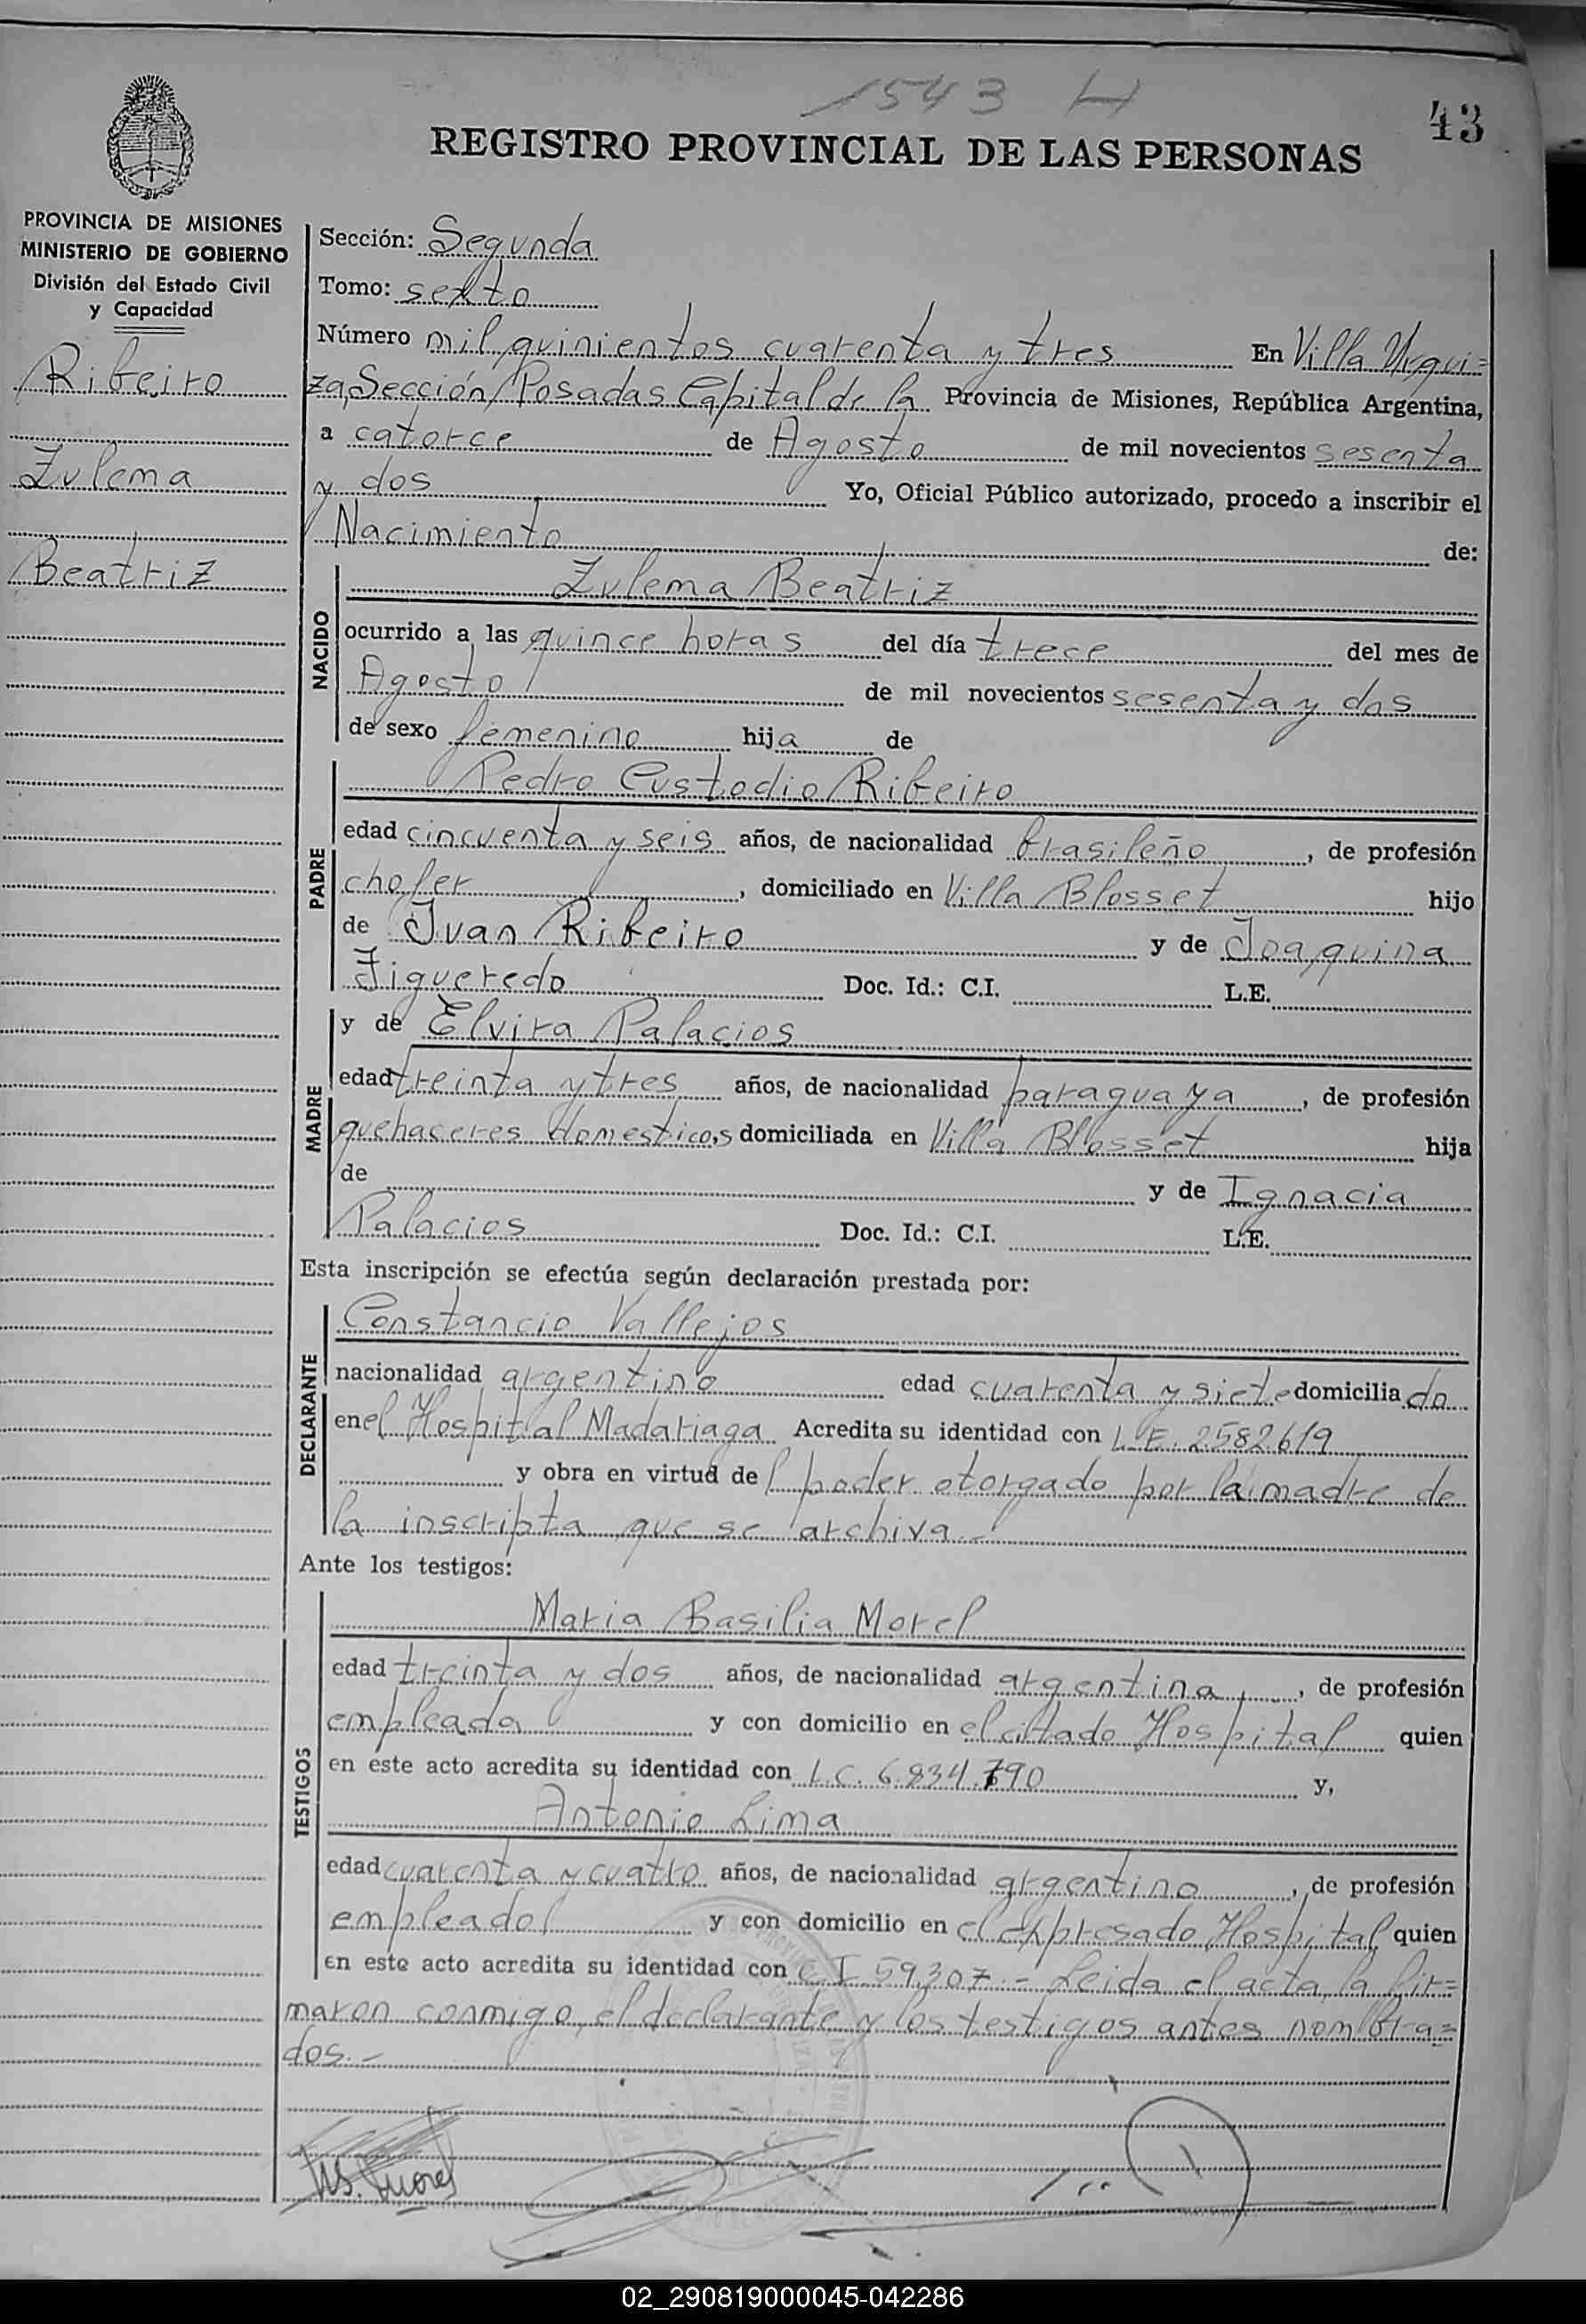 1543 H
43
REGISTRO PROVINCIAL DE LAS PERSONAS
PROVINCIA DE MISIONES
MINISTERIO DE GOBIERNO
División del Estado Civil
y Capacidad
Ribeiro
Zulema
Beatriz
Sección: Segunda
Tomo: sexto
Número mil quinientos cuarenta y tres En Villa Urqui=
za, Sección Posadas Capital de la Provincia de Misiones, República Argentina,
a catorce de Agosto de mil novecientos sesenta
y dos Yo, Oficial Público autorizado, procedo a inscribir el
Nacimiento de:
NACIDO
Zulema Beatriz
ocurrido a las quince horas del día trece del mes de
Agosto de mil novecientos sesenta y dos
de sexo femenino hija de
PADRE
Pedro Custodio Ribeiro
edad cincuenta y seis años, de nacionalidad brasileño, de profesión
chofer, domiciliado en Villa Blosset hijo
de Juan Ribeiro y de Joaquina
Figueredo Doc. Id.: C.I. L.E.
MADRE
y de Elvira Palacios
edad treinta y tres años, de nacionalidad paraguaya, de profesión
quehaceres domesticos domiciliada en Villa Blosset hija
de y de Ignacia
Palacios Doc. Id.: C.I. L.E.
Esta inscripción se efectúa según declaración prestada por:
DECLARANTE
Constancio Vallejos
nacionalidad argentino edad cuarenta y siete domiciliado
en el Hospital Madariaga Acredita su identidad con L.E. 2582619
y obra en virtud del poder otorgado por la madre de
la inscripta que se archiva.-
Ante los testigos:
TESTIGOS
Maria Basilia Morel
edad treinta y dos años, de nacionalidad argentina, de profesión
empleada y con domicilio en el citado Hospital quien
en este acto acredita su identidad con L.C. 6.834.790 y,
Antonio Lima
edad cuarenta y cuatro años, de nacionalidad argentino, de profesión
empleado y con domicilio en el expresado Hospital quien
en este acto acredita su identidad con C.I 59.307.- Leida el acta, la fir=
maron conmigo, el declarante y los testigos antes nombra=
dos.-
02_290819000045-042286